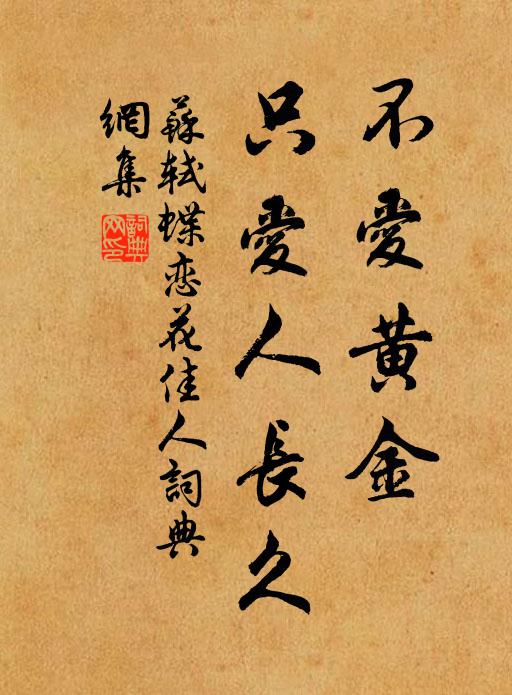 不愛黃金
只愛人長久
蘇軾蝶恋花佳人詞典
網集
詞典
网印